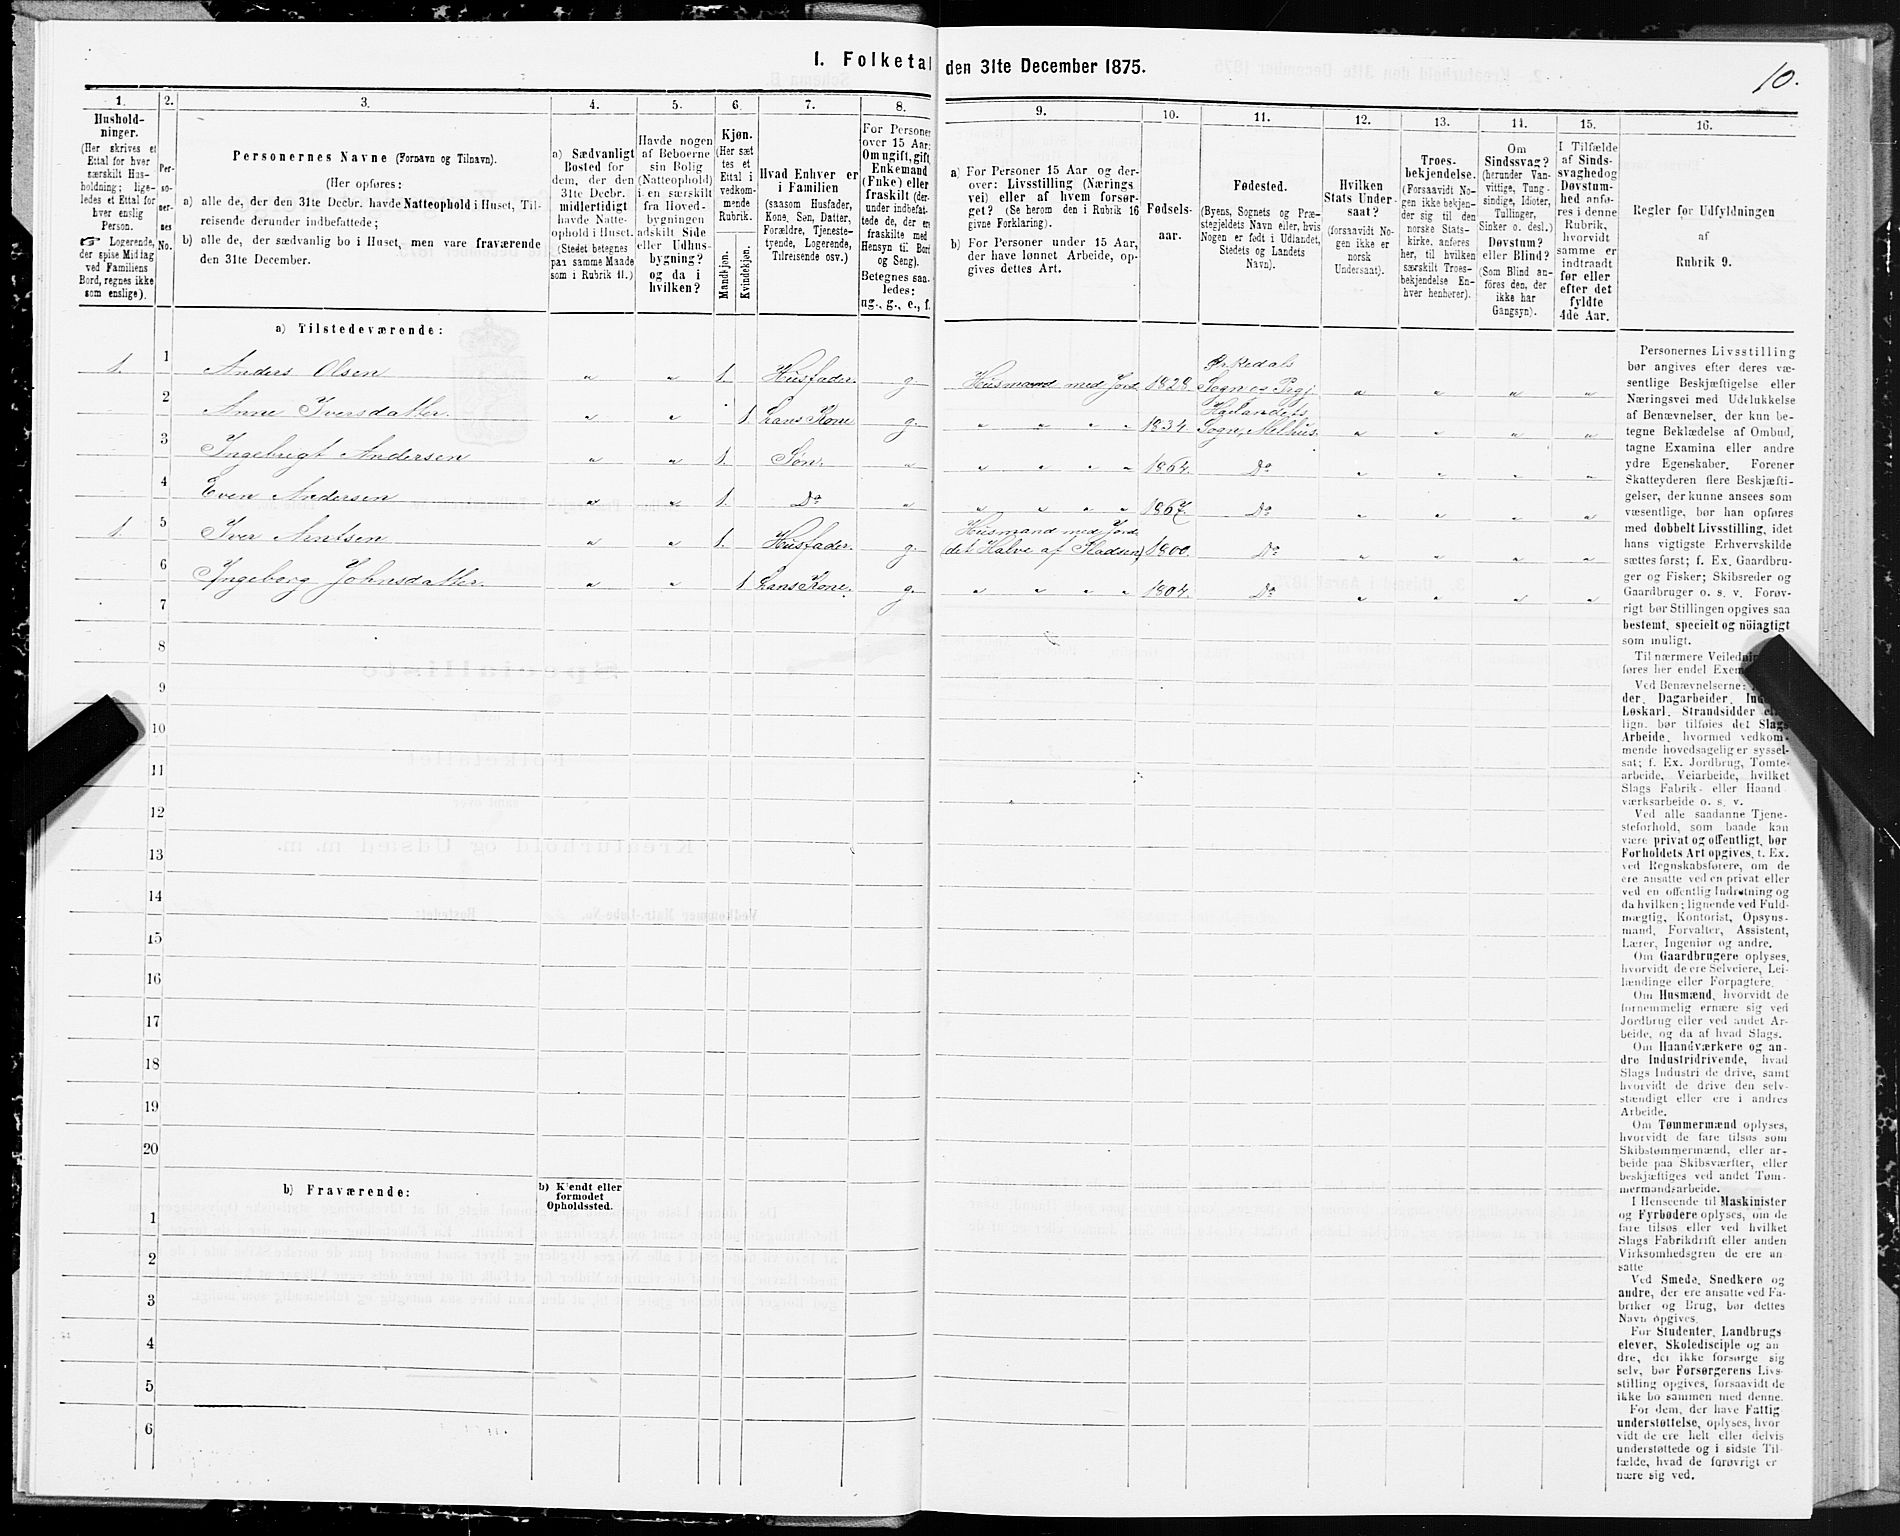 I. Folketal den 31te December 1875.
10.
1.
Hushold-
ninger.
(Her skrives et
Ettal for hver
særskilt Hus-
holdning; lige-
ledes et Ettal for
hver enslig
Person.
☞ Logerende,
der spise Middag
ved Familiens
Bord, regnes ikke
som enslige).
2.
Per-
so-
ner-
nes
No.
3.
Personernes Navne (Fornavn og Tilnavn).
(Her opføres:
a) alle de, der den 31te Decbr. havde Natteophold i Huset, Til-
reisende derunder indbefattede;
b) alle de, der sædvanlig bo i Huset, men vare fraværende
den 31te December.
4.
a) Sædvanligt
Bosted for
dem, der den
31te Decbr.
midlertidigt
havde Natte-
ophold i Huset.
(Stedet betegnes
paa samme Maade
som i Rubrik 11.)
5.
Havde nogen
af Beboerne
sin Bolig
(Natteophold)
i en særskilt
fra Hoved-
bygningen
adskilt Side
eller Udhus-
bygning?
og da i
hvilken?
6.
Kjøn.
(Her sæt
tes et
Ettal i
vedkom-
mende
Rubrik.
Mandkjøn.
Kvindekjøn.
7.
Hvad Enhver er
i Familien
(saasom Husfader,
Kone, Søn, Datter,
Forældre, Tjeneste-
tyende, Logerende,
Tilreisende osv.)
8.
For Personer
over 15 Aar:
Om ugift, gift,
Enkemand
(Enke) eller
fraskilt (der-
under indbefat-
tede de, der er
fraskilte med
Hensyn til Bord
og Seng).
Betegnes saa-
ledes:
ug., g., e., f.
9.
a) For Personer 15 Aar og der-
over: Livsstilling (Nærings
vei) eller af hvem forsør-
get? (Se herom den i Rubrik 16
givne Forklaring).
b) For Personer under 15 Aar,
der have lønnet Arbeide, op-
gives dettes Art.
10.
Fødsels-
aar.
11.
Fødested.
(Byens, Sognets og Præ-
stegjeldets Navn eller, hvis
Nogen er født i Udlandet,
Stedets og Landets
Navn).
12.
Hvilken
Stats Under-
saat?
(forsaavidt No-
gen ikke er
norsk
Undersaat).
13.
Troes-
bekjendelse.
(Forsaavidt No-
gen ikke bekjen-
der sig til den
norske Stats-
kirke, anføres
her, til hvilken
særskilt Troes-
bekjendelse En-
hver henhører).
14.
Om
Sindssvag?
(herunder Van-
vittige, Tung-
sindige, Idioter,
Tullinger,
Sinker o. desl.)
Døvstum?
eller Blind?
(Som Blind an-
føres den, der
ikke har
Gangsyn).
15.
I Tilfælde
af Sinds-
svaghed og
Døvstum-
hed anfø-
res i denne
Rubrik,
hvorvidt
samme er
indtraadt
før eller
efter det
fyldte
4de Aar.
16.
Regler for Udfyldningen
af
Rubrik 9.
a) Tilstedeværende:
1. 1 Anders Olsen „ „ 1. Husfader. g. Husmand med Jord 1828. Orkedals Sognes Prgj. „ „ „ „
2 Anne Iversdatter. „ „ 1. hans Kone g. „ „ „ „ 1834. Hølandets Sogn, Melhus. „ „ „ „
3 Ingebrigt Andersen „ „ 1. Søn. „ „ „ „ „ 1864. Do „ „ „ „
4 Even Andersen „ „ 1. Do „ „ „ „ „ 1867. Do „ „ „ „
1. 5 Iver Arntsen „ „ 1. Husfader. g. Husmand med Jord (det Halve af Pladsen) 1800. Do „ „ „ „
6 Ingeborg Johnsdatter. „ „ 1. hans Kone. g. „ „ „ „ 1804. Do „ „ „ „
7
8
9
10
11
12
13
14
15
16
17
18
19
20
b) Fraværende:
b) Kjendt eller
formodet
Opholdssted.
1
2
3
4
5
6
Personernes Livsstilling
bør angives efter deres væ-
sentlige Beskjæftigelse eller
Næringsvei med Udelukkelse
af Benævnelser, der kun be-
tegne Beklædelse af Ombud,
tagne Examina eller andre
ydre Egenskaber. Forener
Skatteyderen flere Beskjæfti-
gelser, der kunne ansees som
væsentlige, bør han opføres
med dobbelt Livsstilling, idet
hans vigtigste Erhvervskilde
sættes først; f. Ex. Gaardbru-
ger og Fisker; Skibsreder og
Gaardbruger o. s. v. Forøv-
rigt bør Stillingen opgives saa
bestemt, specielt og nöiagtigt
som muligt.
Til nærmere Veiledning
føres her endel Exem
Ved Benævnelserne:
der, Dagarbeider, In
Løskarl, Strandsidder el
lign. bør tilføies det Slags
Arbeide, hvormed vedkom-
mende hovedsagelig er syssel-
sat; f. Ex. Jordbrug, Tomte-
arbeide, Veiarbeide, hvilket
Slags Fabrik- eller Haand-
værksarbeide o. s. v.
Ved alle saadanne Tjene-
steforhold, som baade kan
være privat og offentligt, bør
Forholdets Art opgives, f. Ex.
ved Regnskabsførere, om de
ere ansatte ved en privat eller
ved en offentlig Indretning og
da hvilken; lignende ved Fuld-
mægtig, Kontorist, Opsyns-
mand, Forvalter, Assistent,
Lærer, Ingeniør og andre.
Om Gaardbrugere oplyses,
hvorvidt de ere Selveiere, Lei-
lændinge eller Forpagtere.
Om Husmænd, hvorvidt de
fornemmelig ernære sig ved
Jordbrug eller ved andet Ar-
beide, og da af hvad Slags.
Om Haandværkere og an-
dre Industridrivende, hvad
Slags Industri de drive, samt
hvorvidt de drive den selv-
stændigt eller ere i andres
Arbeide.
Om Tømmermænd oplyses,
hvorvidt de fare tilsøs som
Skibstømmermænd, eller ar-
beide paa Skibsværfter, eller
beskjæftiges ved andet Tøm-
mermandsarbeide.
I Henseende til Maskinister
og Fyrbødere oplyses, om de
fare tilsøs eller ved hvilket
Slags Fabrikdrift eller anden
Virksomhedsgren de ere an-
satte
Ved Smede, Snedkere og
andre, der ere ansatte ved Fa-
briker og Brug, bør dettes
Navn opgives.
For Studenter, Landbrugs
elever, Skoledisciple og an
dre, der ikke forsørge sig
selv, bør Forsørgerens Livs-
stilling opgives, forsaavidt de
ikke bo sammen med denne.
For dem, der have Fattig
understøttelse, oplyses, hvor
vidt de ere helt eller delvis
understøttede og i sidste Til-
fælde, hvad de forøvrigt er
nære sig ved.